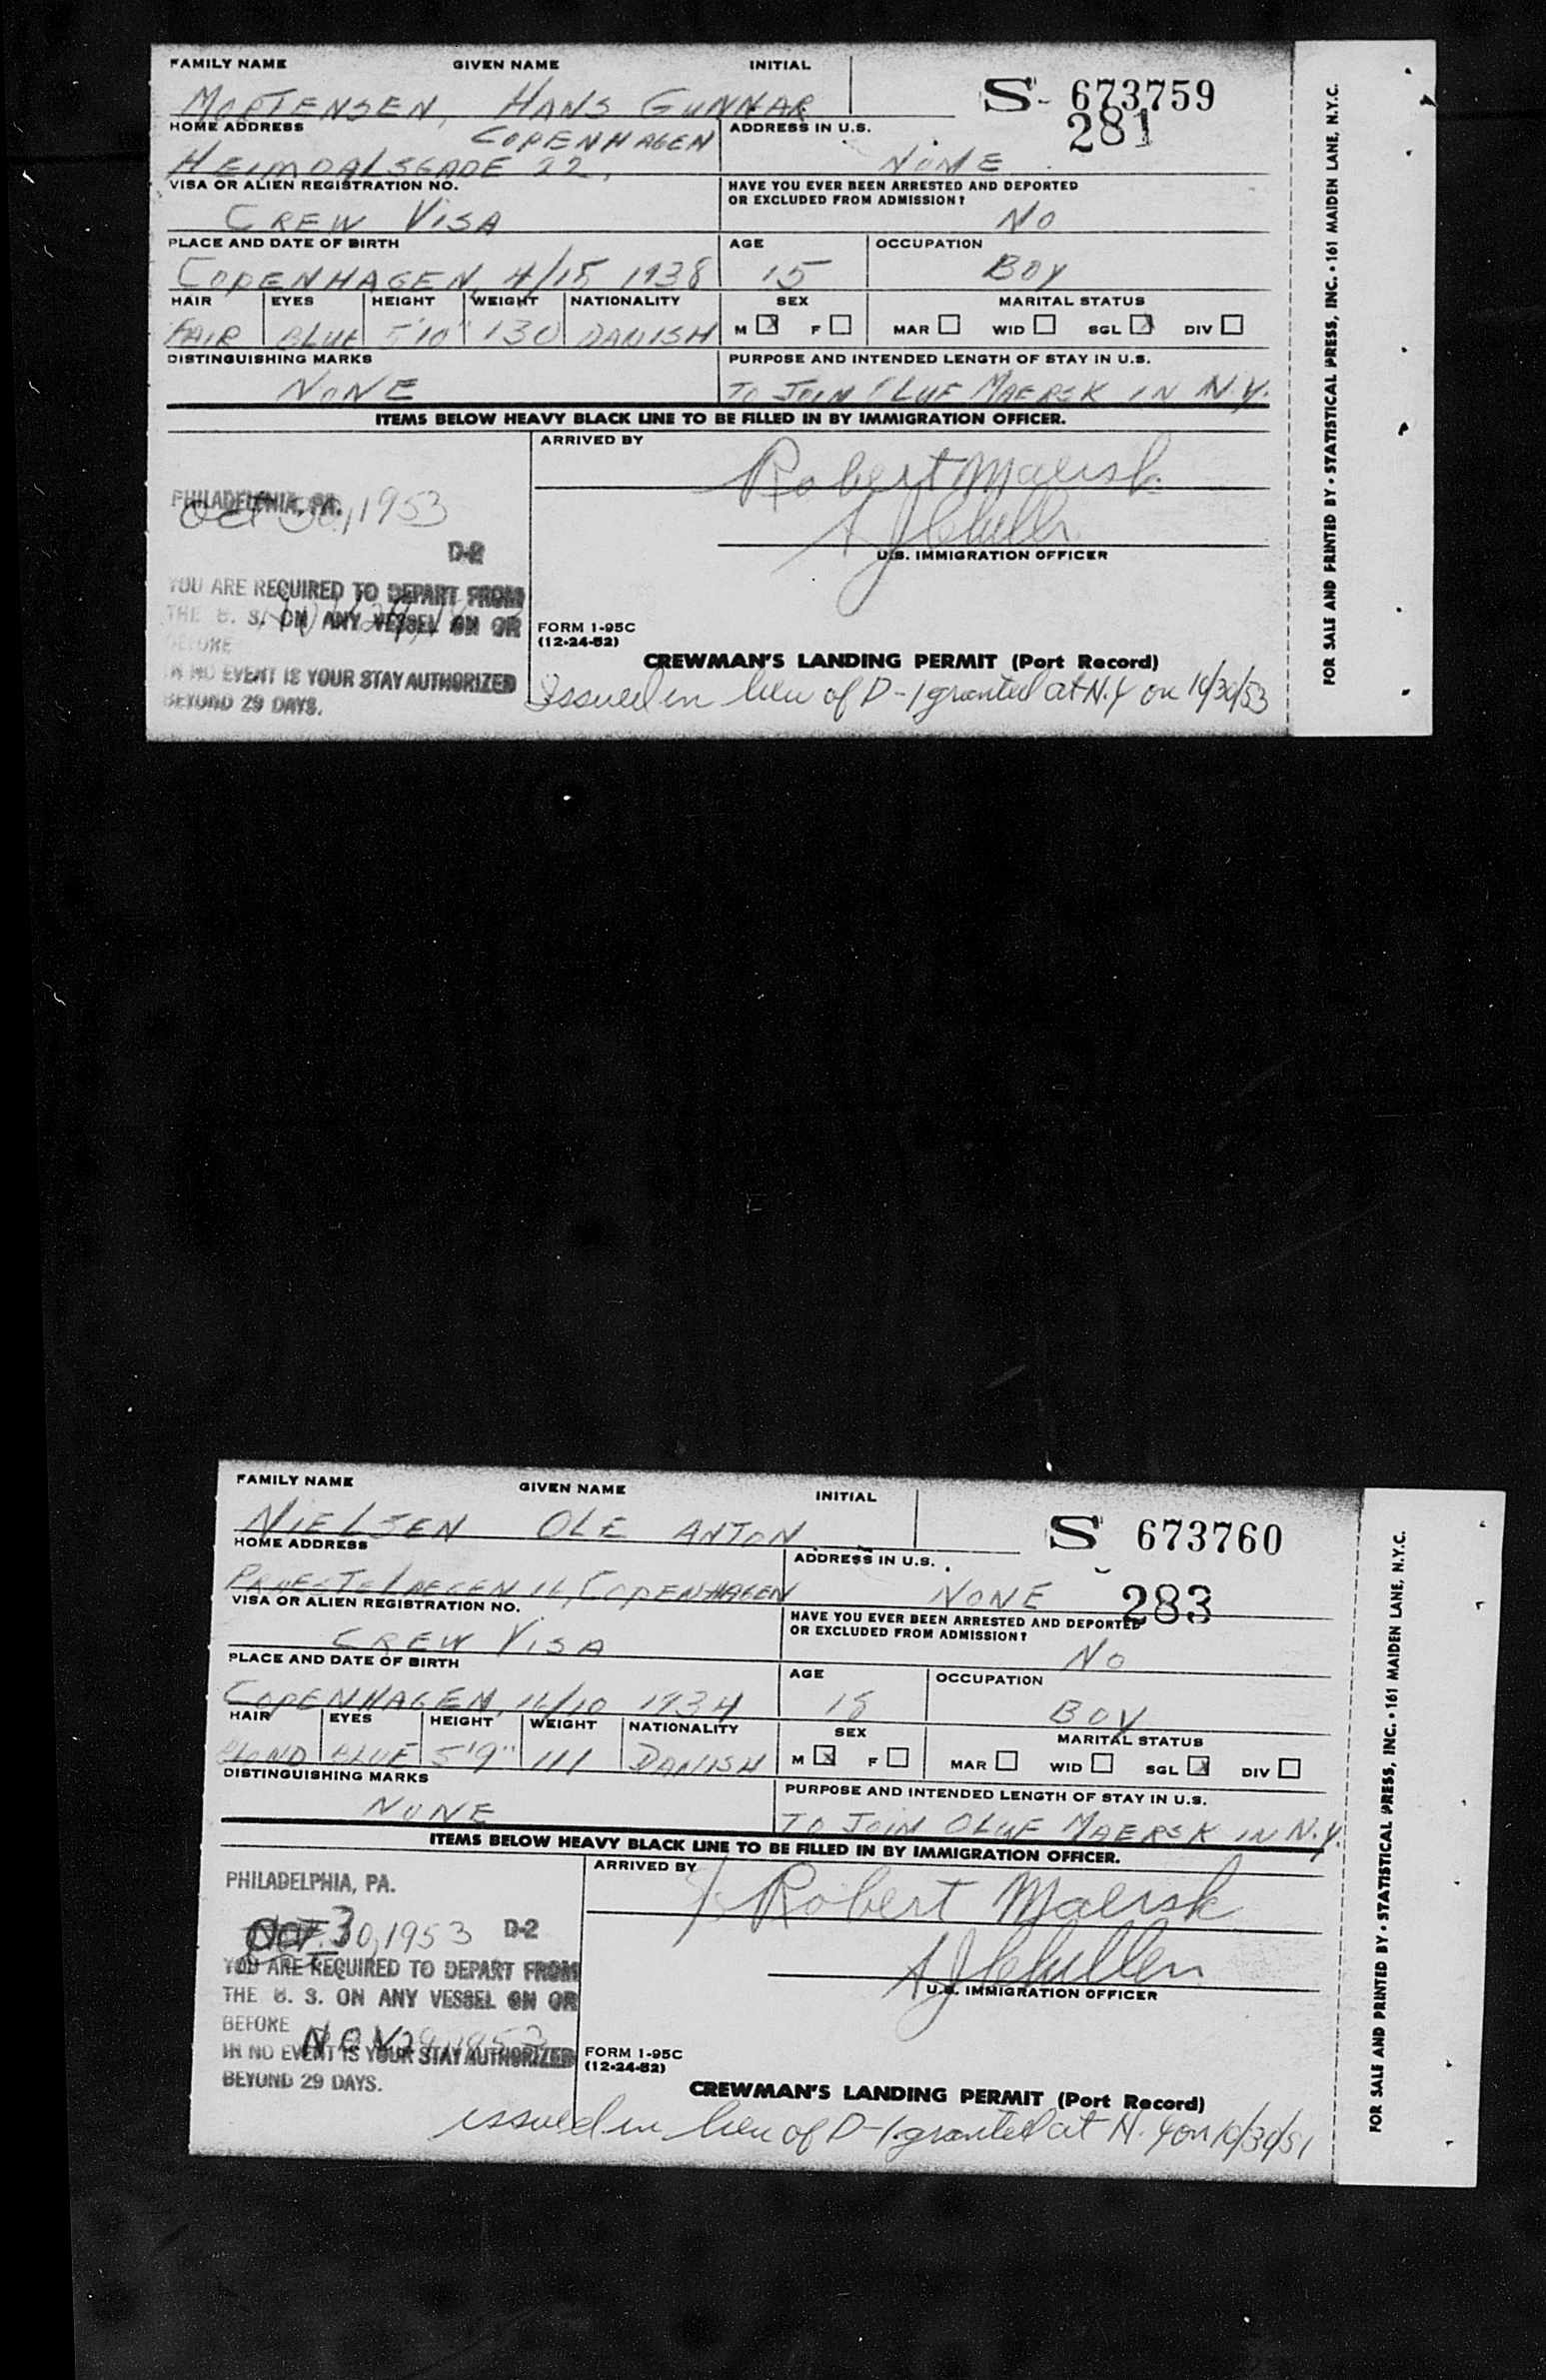 FAMILY NAME GIVEN NAME INITIAL
MORTENSEN, HANS GUNNAR
S- 673759
281
HOME ADDRESS COPENHAGEN ADDRESS IN U.S.
HEIMDALSGADE 22, NONE
VISA OR ALIEN REGISTRATION NO. HAVE YOU EVER BEEN ARRESTED AND DEPORTED
OR EXCLUDED FROM ADMISSION?
CREW VISA NO
PLACE AND DATE OF BIRTH AGE OCCUPATION
COPENHAGEN, 4/15 1938 15 BOY
HAIR EYES HEIGHT WEIGHT NATIONALITY SEX MARITAL STATUS
FAIR BLUE 5'10" 130 DANISH M F MAR WID SGL DIV
DISTINGUISHING MARKS PURPOSE AND INTENDED LENGTH OF STAY IN U.S.
NONE TO JOIN OLUF MAERSK IN N.Y.
ITEMS BELOW HEAVY BLACK LINE TO BE FILLED IN BY IMMIGRATION OFFICER.
ARRIVED BY
Robert Maersk
PHILADELPHIA, PA.
Oct 30, 1953
U.S. IMMIGRATION OFFICER
D-2
YOU ARE REQUIRED TO DEPART FROM
THE U. S. ON ANY VESSEL ON OR
BEFORE
IN NO EVENT IS YOUR STAY AUTHORIZED
BEYOND 29 DAYS.
FORM I-95C
(12-24-52)
CREWMAN'S LANDING PERMIT (Port Record)
Issued in lieu of D-1 granted at N.Y on 10/30/53
FOR SALE AND PRINTED BY • STATISTICAL PRESS, INC. • 161 MAIDEN LANE, N.Y.C.
FAMILY NAME GIVEN NAME INITIAL
NIELSEN OLE ANTON
S 673760
HOME ADDRESS ADDRESS IN U.S.
COPENHAGEN NONE 283
VISA OR ALIEN REGISTRATION NO. HAVE YOU EVER BEEN ARRESTED AND DEPORTED
OR EXCLUDED FROM ADMISSION?
CREW VISA NO
PLACE AND DATE OF BIRTH AGE OCCUPATION
COPENHAGEN, 16/10 1934 18 BOY
HAIR EYES HEIGHT WEIGHT NATIONALITY SEX MARITAL STATUS
BLOND BLUE 5'9" 111 DANISH M F MAR WID SGL DIV
DISTINGUISHING MARKS PURPOSE AND INTENDED LENGTH OF STAY IN U.S.
NONE TO JOIN OLUF MAERSK IN N.Y.
ITEMS BELOW HEAVY BLACK LINE TO BE FILLED IN BY IMMIGRATION OFFICER.
ARRIVED BY
Robert Maersk
PHILADELPHIA, PA.
OCT 30, 1953 D-2
U.S. IMMIGRATION OFFICER
YOU ARE REQUIRED TO DEPART FROM
THE U. S. ON ANY VESSEL ON OR
BEFORE NOV 29, 1953
IN NO EVENT IS YOUR STAY AUTHORIZED
BEYOND 29 DAYS.
FORM I-95C
(12-24-52)
CREWMAN'S LANDING PERMIT (Port Record)
issued in lieu of D-1 granted at N.Y on 10/30/51
FOR SALE AND PRINTED BY • STATISTICAL PRESS, INC. • 161 MAIDEN LANE, N.Y.C.